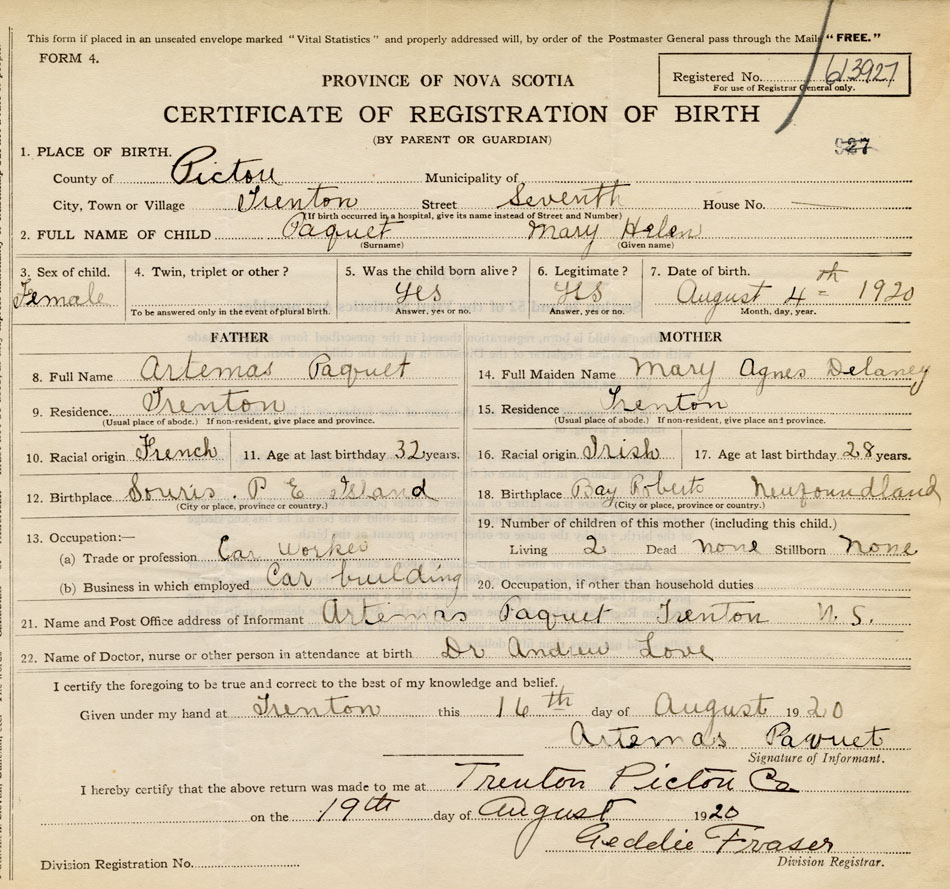 This form if placed in an unsealed envelope marked "Vital Statistics" and properly addressed will, by order of the Postmaster General pass through the Mails "FREE."
FORM 4.
Registered No. 613927
For use of Registrar General only.
PROVINCE OF NOVA SCOTIA
CERTIFICATE OF REGISTRATION OF BIRTH
(BY PARENT OR GUARDIAN)
927
1. PLACE OF BIRTH.
County of Pictou Municipality of
City, Town or Village Trenton Street Seventh House No.
(If birth occurred in a hospital, give its name instead of Street and Number)
2. FULL NAME OF CHILD Paquet Mary Helen
(Surname) (Given name)
3. Sex of child. 4. Twin, triplet or other? 5. Was the child born alive? 6. Legitimate? 7. Date of birth.
Female yes yes August 4th 1920
To be answered only in the event of plural birth. Answer, yes or no. Answer, yes or no. Month, day, year.
FATHER MOTHER
8. Full Name Artemas Paquet 14. Full Maiden Name Mary Agnes Delaney
9. Residence. Trenton 15. Residence Trenton
(Usual place of abode.) If non-resident, give place and province. (Usual place of abode.) If non-resident, give place and province.
10. Racial origin French 11. Age at last birthday 32 years. 16. Racial origin Irish 17. Age at last birthday 28 years.
12. Birthplace Souris. P E Island 18. Birthplace Bay Roberts Newfoundland
(City or place, province or country.) (City or place, province or country.)
13. Occupation:— 19. Number of children of this mother (including this child.)
(a) Trade or profession Car worker Living 2 Dead none Stillborn none
(b) Business in which employed Car building 20. Occupation, if other than household duties
21. Name and Post Office address of Informant Artemas Paquet Trenton N. S.
22. Name of Doctor, nurse or other person in attendance at birth Dr Andrew Love
I certify the foregoing to be true and correct to the best of my knowledge and belief.
Given under my hand at Trenton this 16th day of August 1920
Artemas Paquet
Signature of Informant.
I hereby certify that the above return was made to me at Trenton Pictou Co
on the 19th day of August 1920
Geddie Fraser
Division Registration No. Division Registrar.